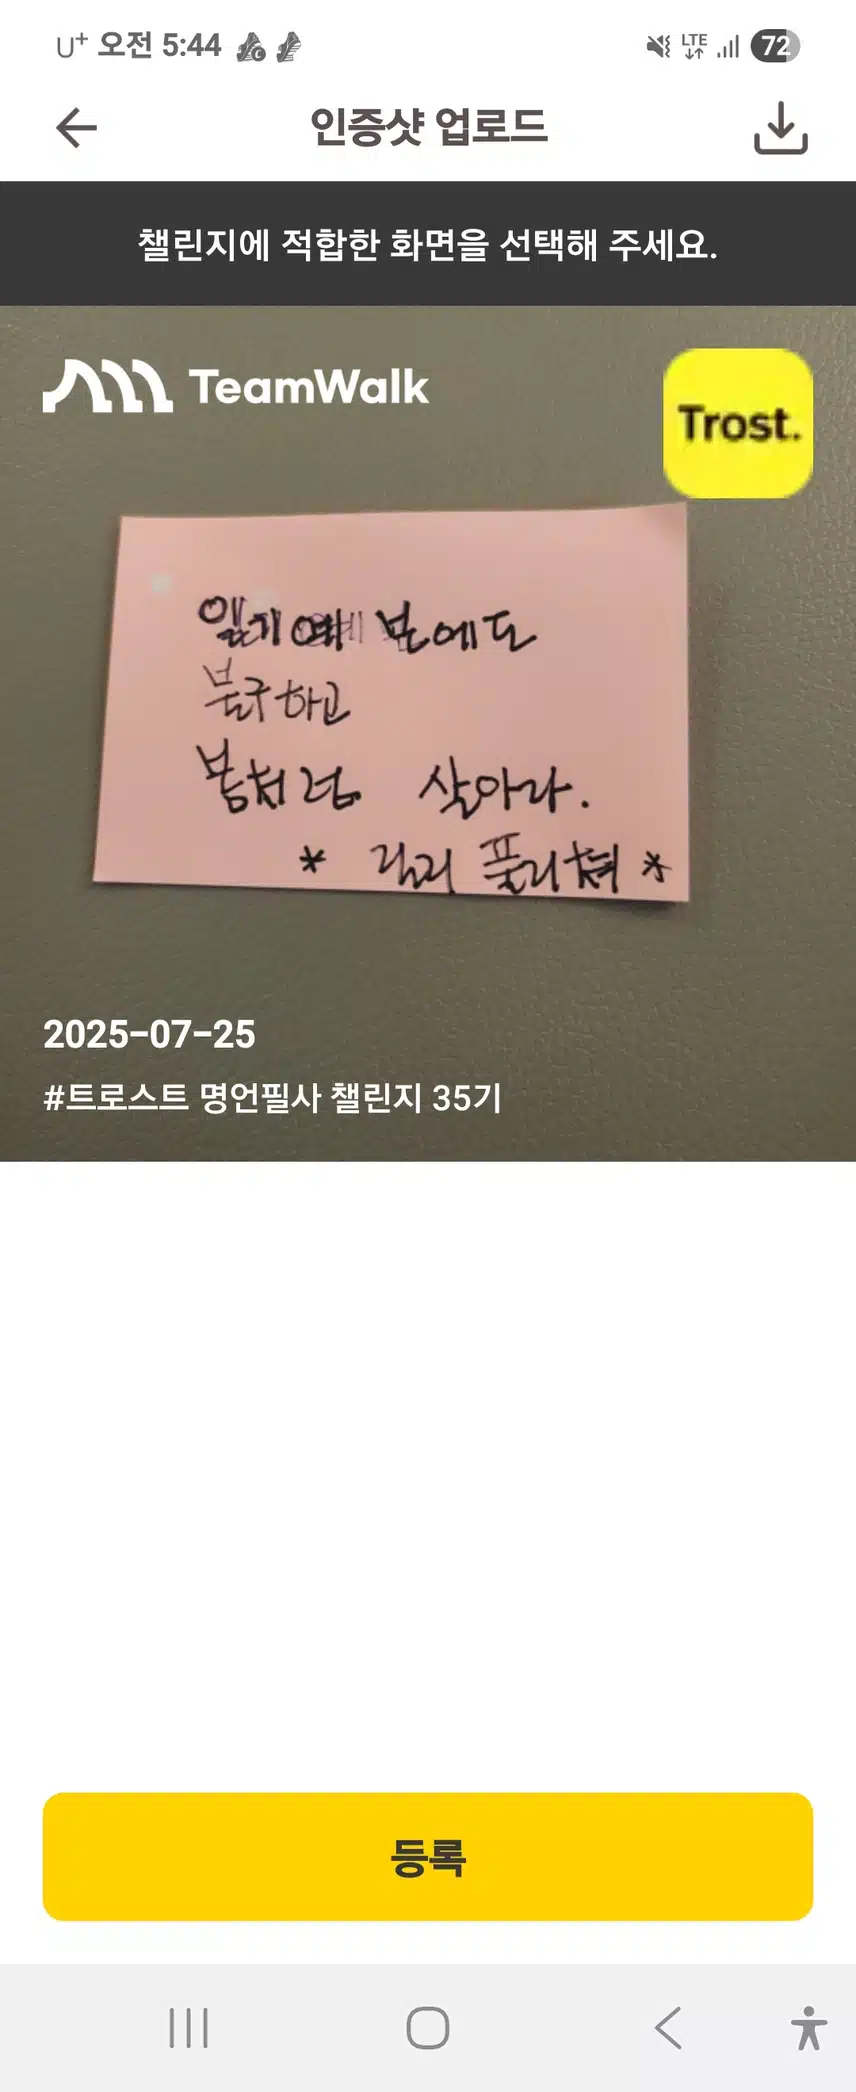 U+ 오전 5:44 LTE 72
인증샷 업로드
챌린지에 적합한 화면을 선택해 주세요.
TeamWalk
Trost.
일기예보에도
불구하고
봄처럼 살아라.
* 릴리 풀리쳐 *
2025-07-25
#트로스트 명언필사 챌린지 35기
등록